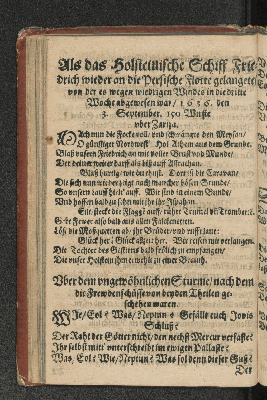 Als das Holsteinische Schiff Frie-
drich wieder an die Persische Flotte gelanget
von der es wegen wiedrigen Windes in die dritte
Woche abgewesen war / 1636. den
3. September. 150 Wüste
vber Zariza.
die Focke voll / vnd schränget den Mesan /
O günstiger Nordwest! Hol Athem aus dem Grunde.
Blaß vnsern Friedrich an mit voller Brust vnd Munde /
Der deiner weiter darff als biß auff Astrachan.
Blaß hurtig / wie du thust. Dort ist die Caravan /
Die sich nun wiederzeigt nach mancher bösen Stunde /
So vnsern bauch theilt auff. Wir sind in einem Bunde /
Vnd hoffen bald zu sehn mit ihr ihr Ispahan.
Ein steckt die Flagge auff rührt Trummel vnd Trombeten.
Gebt Fewer also bald aus allen Falckeneten.
Löß die Mußqueten ab / ihr Brüder / vnd rufft laut:
Glück her! Glück allzeit her! Wir reisen mit verlangen.
Die Tochter des Gestirns bald frölich zu empfangen /
Die vnser Holstein ihm erwehlt zu einer Braut.
Vber dem vngewöhnlichen Sturme / nach dem
die Frewdenschüsse von beyden Theilen ge-
schehen waren.
WJe / Eol? Was / Neptun? Gefälle euch Jovis
Schluß?
Der Raht der Götter nicht / den nechst Mercur verfaßte?
Jhr selbst mit vnterschreibt im ewigen Pallaste?
Was / Eol? Wie / Neptun? Was sol denn dieser Guß?
Der